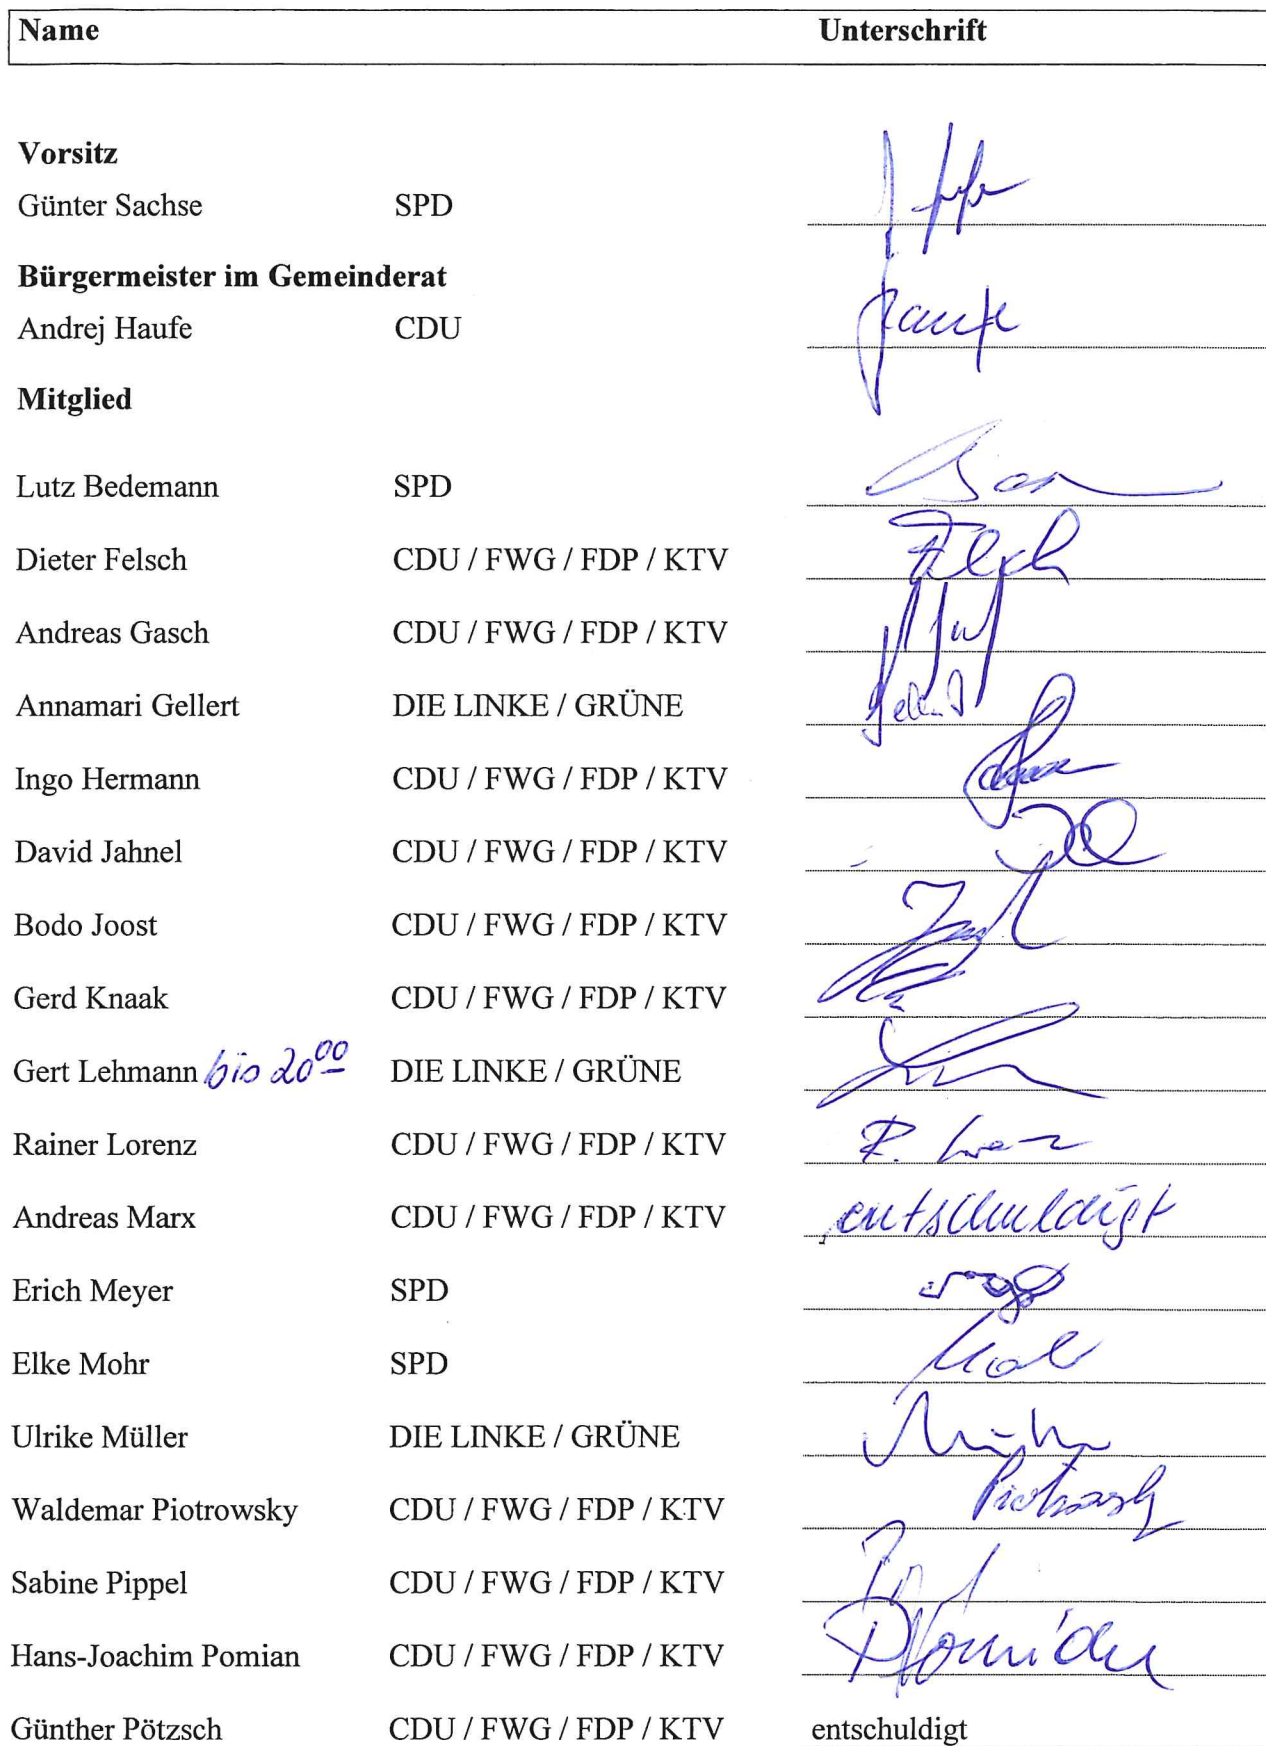 Name Unterschrift
Vorsitz
Günter Sachse SPD
Bürgermeister im Gemeinderat
Andrej Haufe CDU Haufe
Mitglied
Lutz Bedemann SPD
Dieter Felsch CDU / FWG / FDP / KTV
Andreas Gasch CDU / FWG / FDP / KTV
Annamari Gellert DIE LINKE / GRÜNE
Ingo Hermann CDU / FWG / FDP / KTV
David Jahnel CDU / FWG / FDP / KTV
Bodo Joost CDU / FWG / FDP / KTV
Gerd Knaak CDU / FWG / FDP / KTV
Gert Lehmann bis 20⁰⁰ DIE LINKE / GRÜNE
Rainer Lorenz CDU / FWG / FDP / KTV
Andreas Marx CDU / FWG / FDP / KTV entschuldigt
Erich Meyer SPD
Elke Mohr SPD
Ulrike Müller DIE LINKE / GRÜNE
Waldemar Piotrowsky CDU / FWG / FDP / KTV
Sabine Pippel CDU / FWG / FDP / KTV
Hans-Joachim Pomian CDU / FWG / FDP / KTV
Günther Pötzsch CDU / FWG / FDP / KTV entschuldigt